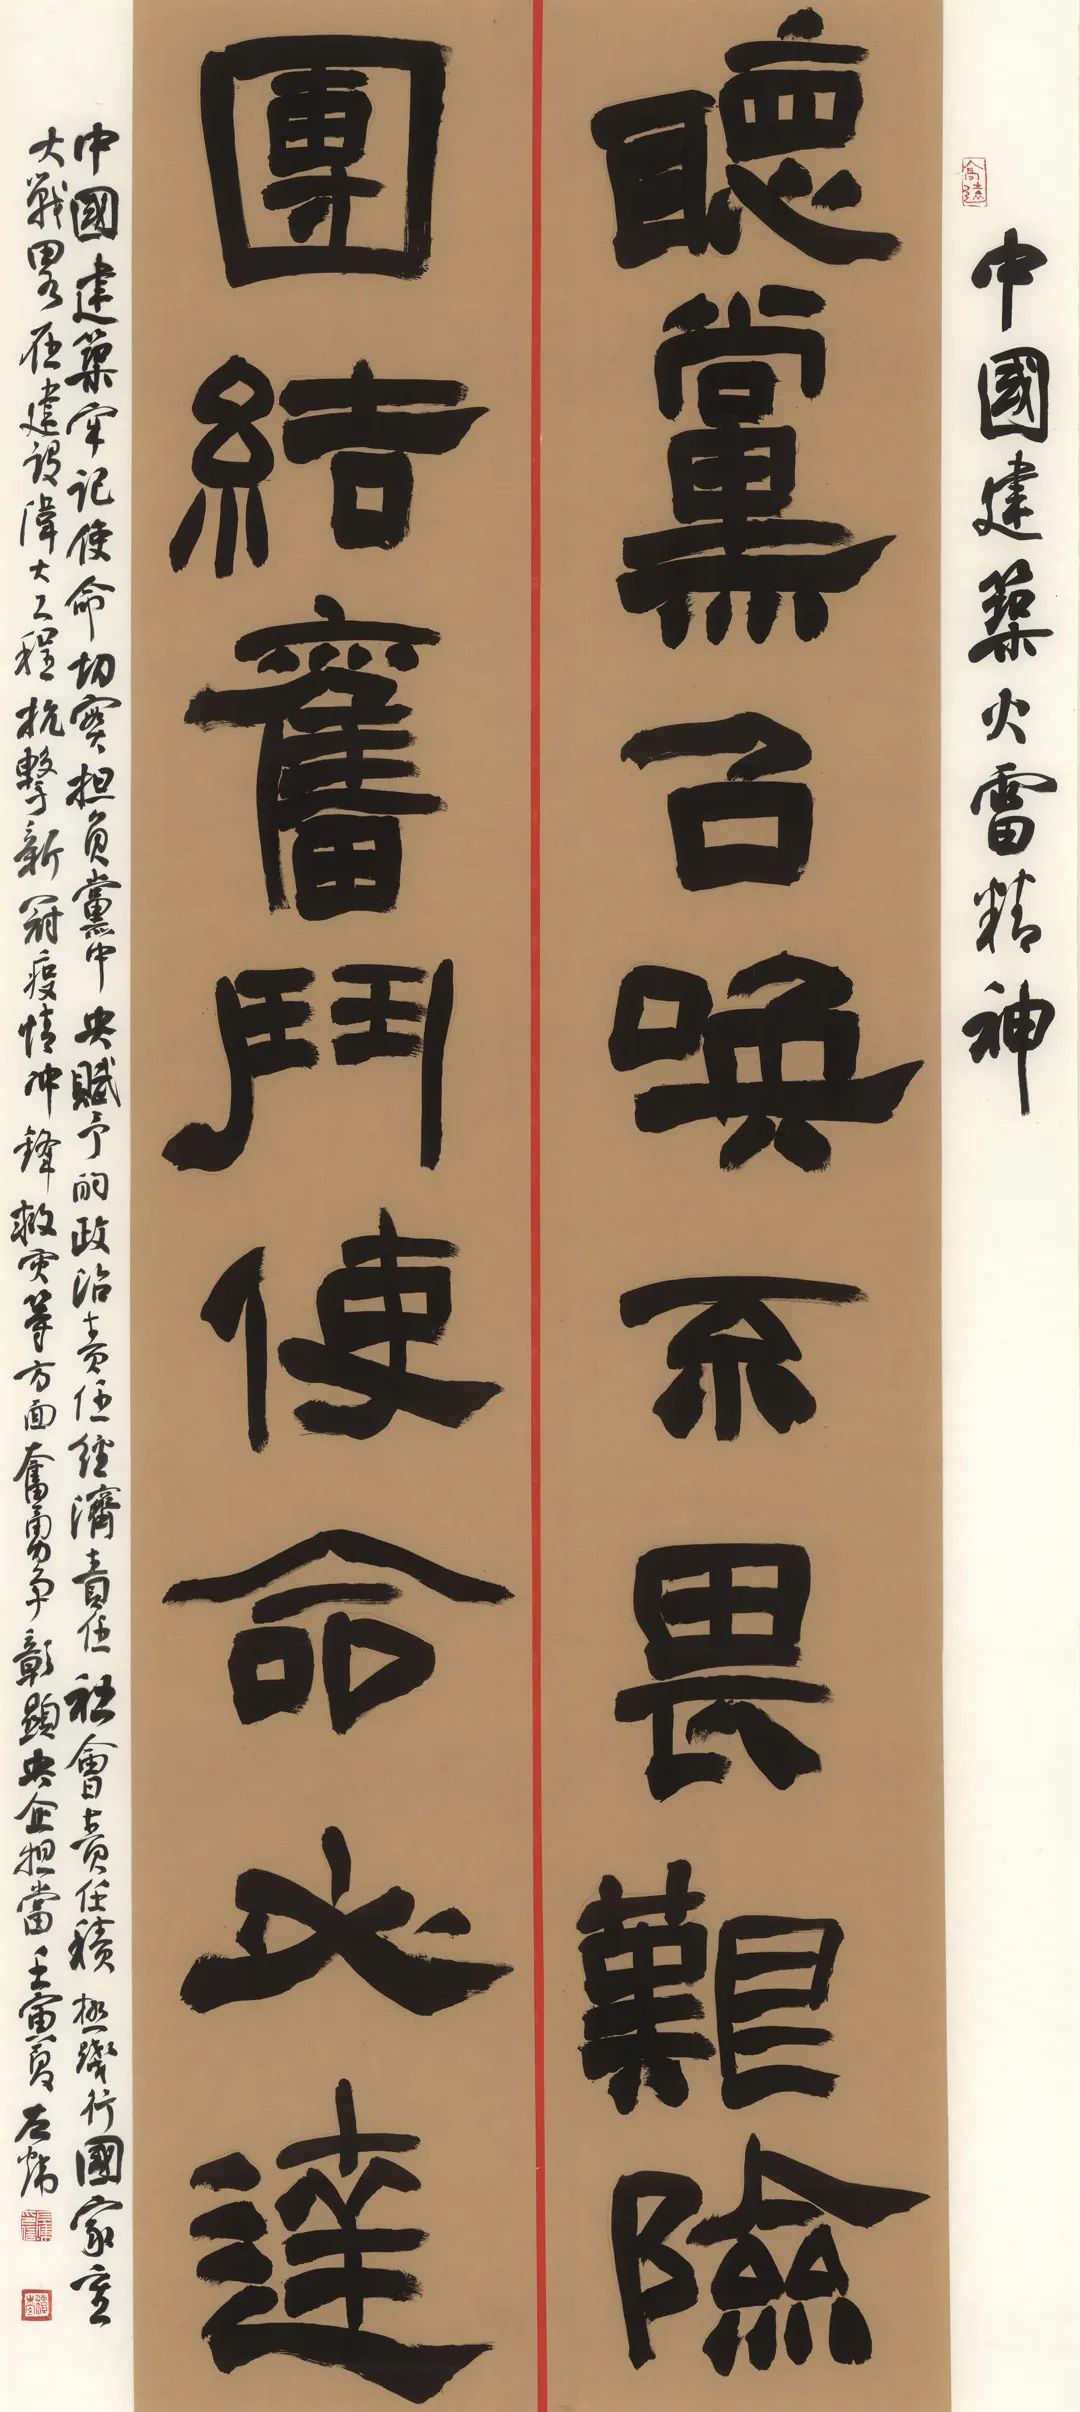 中國建築火雷精神
聽黨召喚不畏艱險
團結奮鬥使命必達
中國建築牢記使命切實担負黨中央賦予的政治責任經濟責任社會責任積極踐行國家重
大戰畧在建設偉大工程抗擊新冠疫情冲鋒救灾等方面奮勇争彰顯央企担當壬寅夏左煒